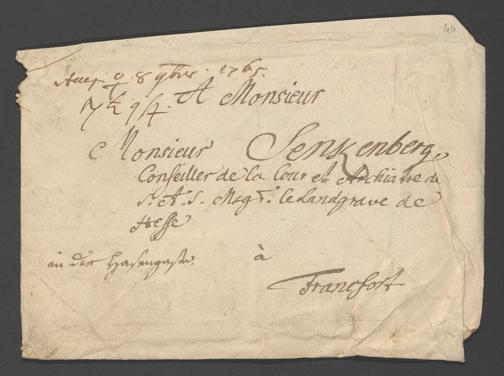 46
Accep. ♀ 8 9bris. 1765.
A Monsieur
Monsieur Senkenberg,
Conseiller de la Cour et Archiatre de
S. A. S. Msgr: le Landgrave de
Hesse
in der Hasengasse. à
Francfort